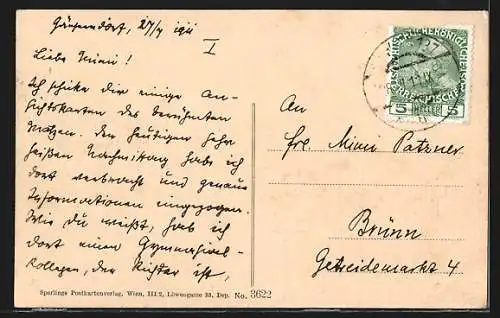 Gänserndorf, 27/7 1911
I
Liebe Mimi!
Ich schicke dir einige An-
sichtskarten des berühmten
Matzen. Den heutigen sehr
heißen Nachmittag hab ich
dort verbracht und genaue
Informationen eingezogen.
Wie du weißt, hab ich
dort einen Gymnasial-
kollegen, der Richter ist,
An
Frl. Mimi Patzner
Brünn
Getreidemarkt 4
5 5
Sperlings Postkartenverlag, Wien, III/2, Löwengasse 33, Dep. No. 3622